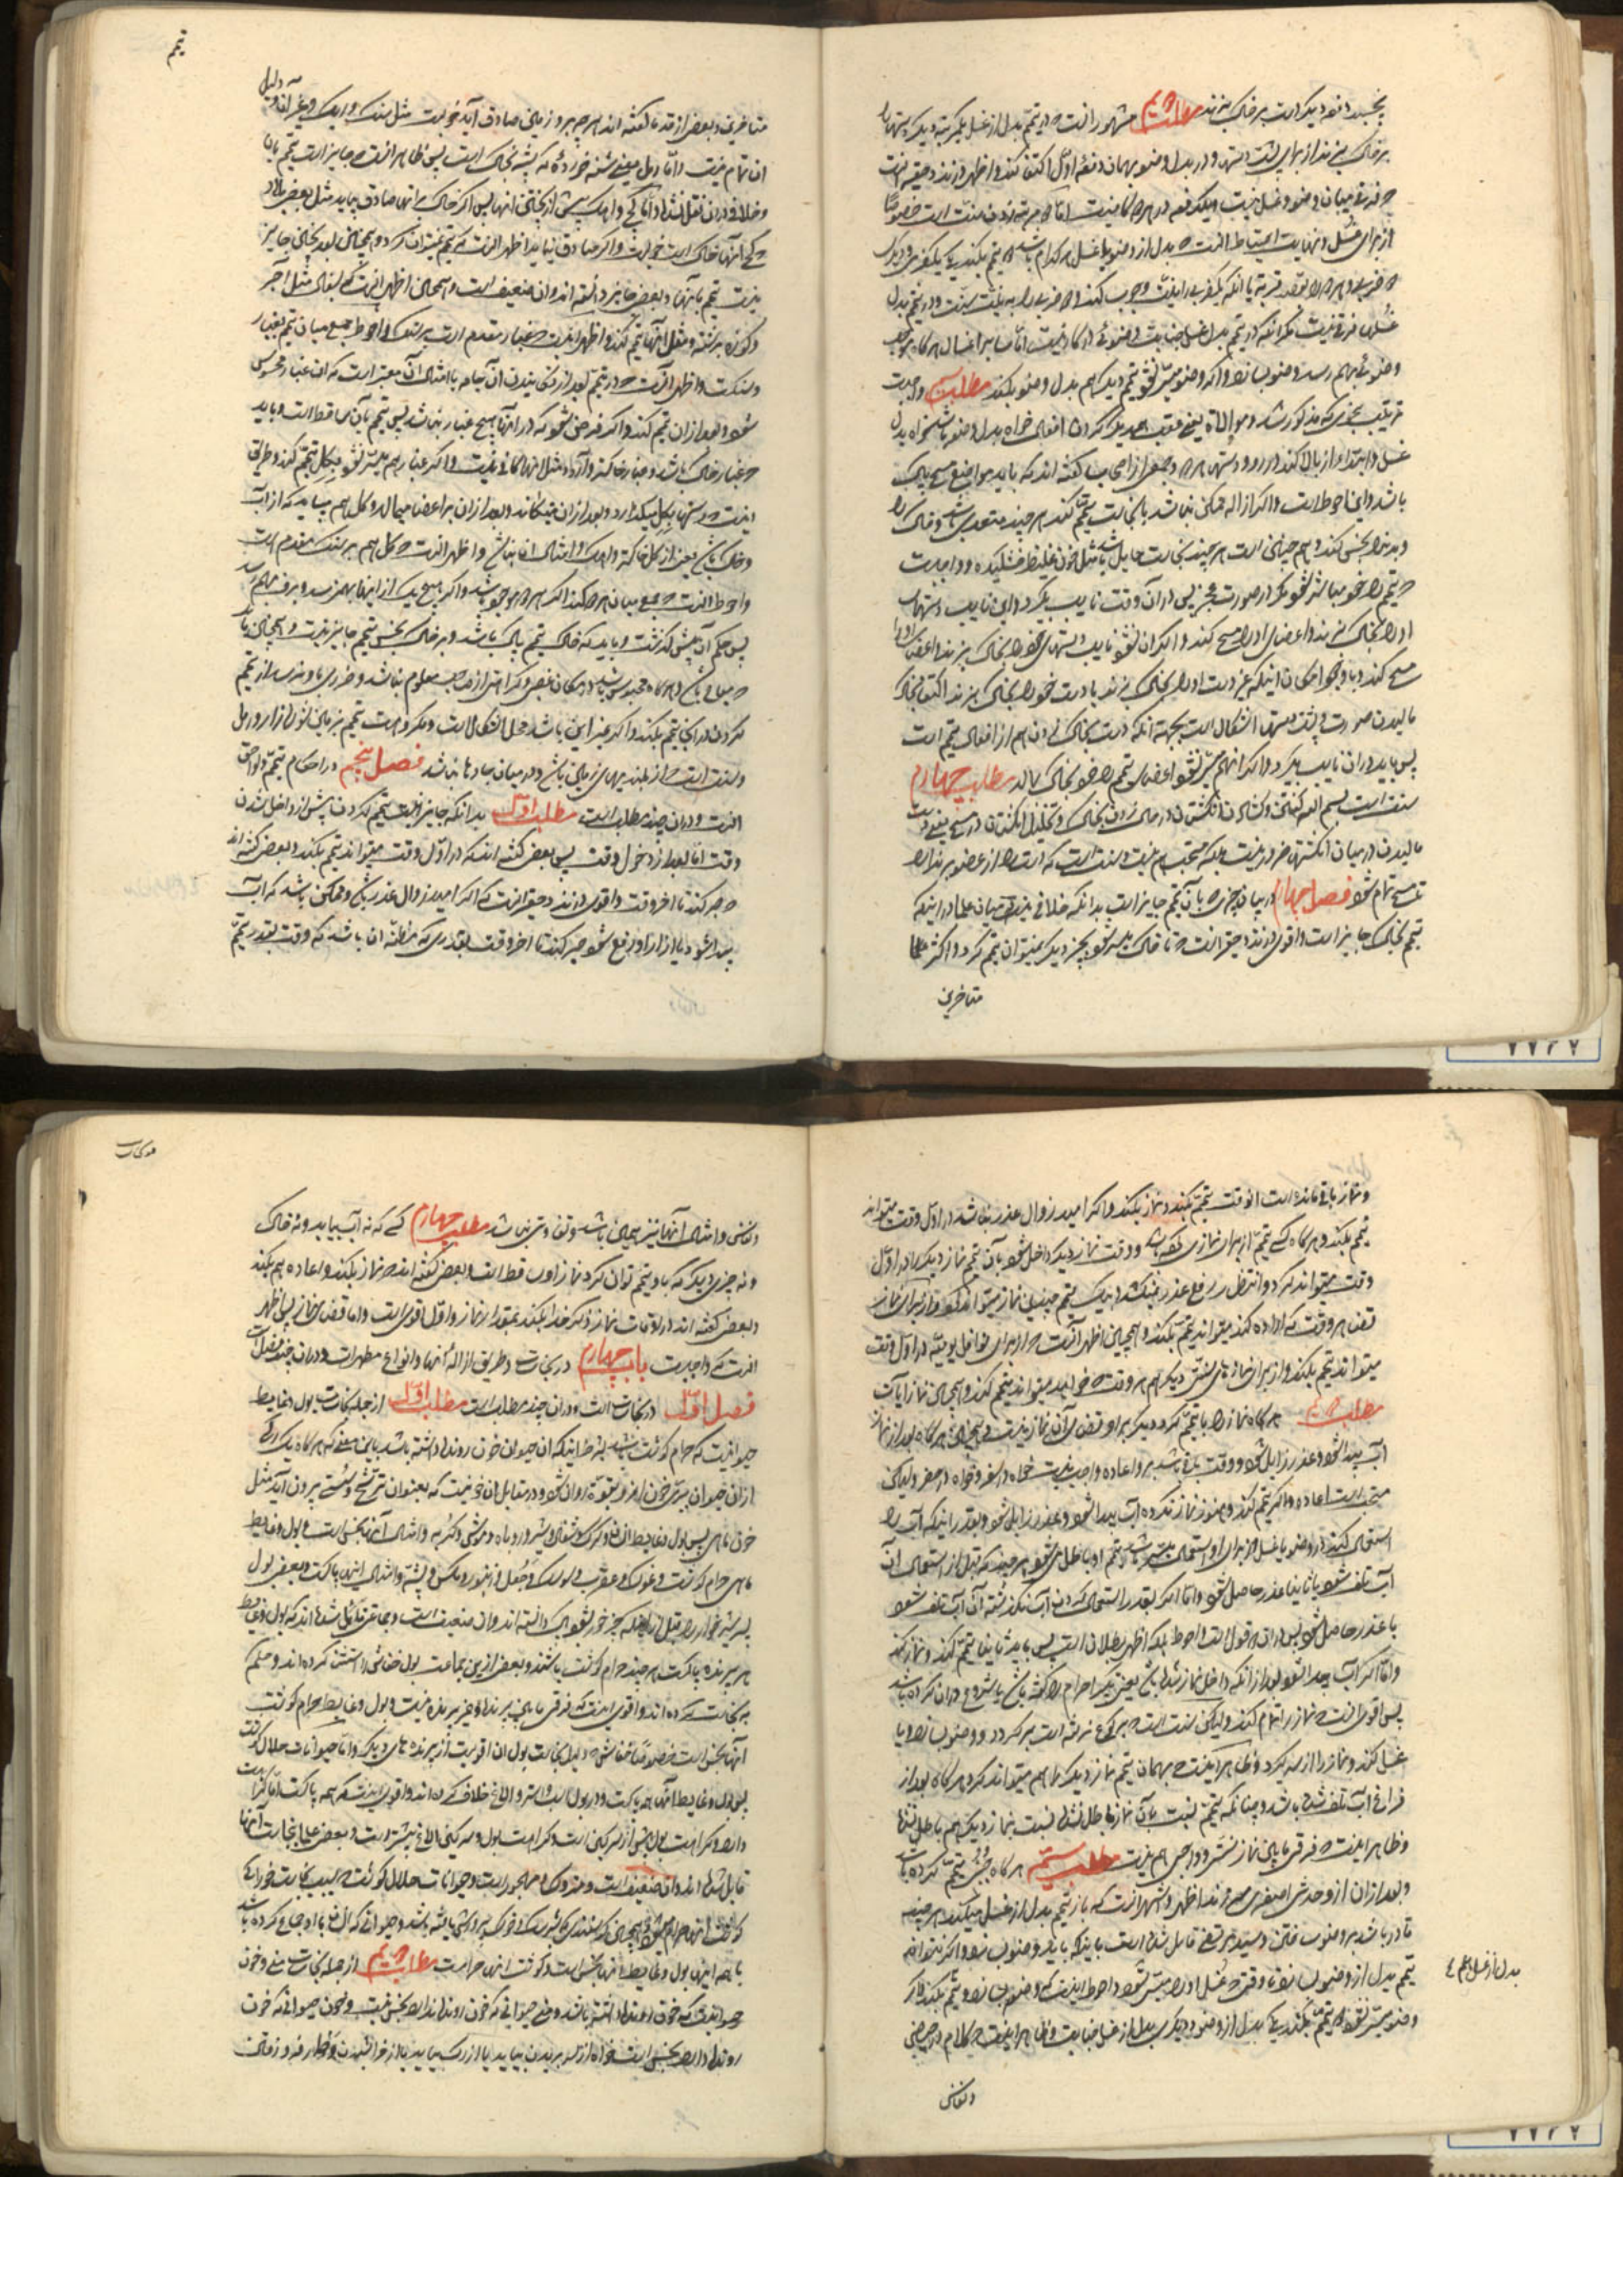 بچسبد دفعه دیگر است بر خاک بزند مطلب دویم مشهور آنست که در تیمم بدل از غسل یکمرتبه دیگر دستها را
بر خاک میزند از برای پشت دستها و در بدل وضو بهمان دفعه اول اکتفا کند و اظهر در نزد حقیر آنست
که فرقی میان وضو و غسل نیست و یکدفعه در هر دو کافیست اما دو مرتبه زدن سنت است خصوصا
از برای غسل و نهایت احتیاط آنست که بدل از وضو یا غسل هر کدام باشد دو تیمم بکند یکی بیکضربت و دیگری
غسلها فرقی نیست مگر آنکه در تیمم بدل غسل جنابت وضوئی در کار نیست اما سایر اغسال هر گاه
وضوئی بهم رسد وضو بسازد و اگر وضو میسر نشود تیمم دیگر هم بدل وضو بکند مطلب سیم واجبست
ترتیب بنحوی که مذکور شد و موالاة یعنی عقب همدیگر کردن افعال خواه بدل وضو باشد خواه بدل
غسل و ابتدا از بالا کند در رو و دستها و جمعی از اصحاب گفته اند که باید مواضع مسح پاک
باشد و این احوط است و اگر ازاله ممکن نباشد با نجاست تیمم کند هر چند متعدی باشد و خاک را
و بدنرا نجس کند و هم چنین است هر چند نجاست حایل باشد مثل خون غلیظ خشکیده و واجبست
که تیمم را خود مباشر شود مگر در صورت عجز پس در آن وقت نایب بگیرد و این نایب دستهای
او را بخاک میزند و اعضای او را مسح کند و اگر آن نشود نایب دستهای خود را بخاک بزند و اعضای او را
مسح کند و با وجود امکان اینکه دست او را بخاک بزند یا دست خود را بخاک بزند اکتفا بخاک
مالیدن صورت و پشت دستها اشکال است بجهة آنکه دست بخاک زدن هم از افعال تیمم است
پس باید در آن نایب بگیرد و اگر آنهم میسر نشود اعضای تیمم را خود بخاک بمالد مطلب چهارم
سنت است بسم الله گفتن و گشادن انگشتان در حال زدن بخاک و تخلیل انگشتان در مسح یعنی دست
مالیدن در میان انگشتان ضرور نیست بلکه مستحب هم نیست و سنت است که دست را از عضو بر ندارد
تا مسح تمام شود فصل چهارم در بیان چیزی که بآن تیمم جایز است بدانکه خلافی نیست میان علما در اینکه
تیمم بخاک جایز است و اقوی در نزد حقیر آنست که تا خاک میسر شود بچیز دیگر نمیتوان تیمم کرد و اکثر علما
متاخرین
تیمم
متاخرین و بعضی از قدما گفته اند هر چه بر او زمین صادق آید خوبست مثل سنگ و آهک و غیر آن و دلیل
ان تمام نیست و اما رمل یعنی شنه
و خلافی در آن نقل نشده و اما گچ و آهک پیش از پختن آنها پس اگر خاک بر آنها صادق بیاید مثل بعضی بلاد
که گچ آنها خاک است خوبست و اگر صادق نیاید اظهر آنست که تیمم نمیتوان کرد و همچنین بعد پختن جایز
نیست تیمم بآنها و بعضی جایز دانسته اند و آن ضعیف است و همچنین اظهر آنست که بسفال مثل آجر
و کوزه برشته و مثل آنها تیمم نکند و اظهر اینست که غبار مقدم است بر سنگ و احوط جمع میان تیمم بغبار
و سنگ است و اظهر آنست که در تیمم بعد از تکانیدن آن جامه یا امثال آن معتبر است که آن غبار محسوس
شود و بعد از آن تیمم کند و اگر فرض شود که در آنها هیچ غبار نباشد پس تیمم بآن ساقط است و باید
که غبار خاک باشد و غبار خاکستر و آرد و مثل آنها کافی نیست و اگر غبار هم میسر نشود بگل تیمم کند و طریق
اینست که دستها بگل میگذارد و بعد از آن میتکاند و بعد از آن بر اعضا میمالد و گل هم میباید که از آب
و خاک باشد یعنی از گل خاکه و آهک و امثال آن نباشد و اظهر آنست که گل هم بر سنگ مقدم است
و احوط آنست که جمع میان هر دو کند اگر هر دو موجود باشد و اگر هیچ یک از اینها بهم نرسد و برف بهم رسد
پس حکم آن پیش گذشت و باید که خاک تیمم پاک باشد و بر خاک نجس تیمم جایز نیست و همچنین باید
که مباح باشد و هر گاه محبوس باشد در مکان غصبی و کراهت از صاحب معلوم نباشد و ضرری باو نرسد از تیمم
کردن در آنجا تیمم بکند و اگر غیر این باشد محل اشکال است و مکروهست تیمم بزمین شوره زار و رمل
و سنت است که از بلندیهای زمین باشد و در میان جاده ها نباشد فصل پنجم در احکام تیمم و لواحق
آنست و در آن چند مطلب است مطلب اول بدانکه جایز نیست تیمم کردن پیش از داخل شدن
وقت اما بعد از دخول وقت پس بعضی گفته اند که در اول وقت میتواند تیمم بکند و بعضی گفته اند
که صبر کند تا اخر وقت و اقوی در نزد حقیر آنست که اگر امید زوال عذر باشد و ممکن باشد که آب
پیدا شود یا آزار او رفع شود صبر کند تا اخر وقت بقدری که مظنه آن باشد که وقت بقدر تیمم
و نماز باقی مانده است آنوقت تیمم بکند و نماز بکند و اگر امید زوال عذر نباشد در اول وقت میتواند
تیمم بکند و هر گاه کسی تیمم از برای نمازی کرده باشد و وقت نماز دیگر داخل شود بآن تیمم نماز دیگر را در اول
وقت میتواند کرد و انتظار رفع عذر نمیکشد و بیک تیمم چندین نماز میتوان کرد و از برای نماز
قضا هر وقت که اراده کند میتواند تیمم بکند و همچنین اظهر آنست که از برای نوافل یومیه در اول وقت
میتواند تیمم بکند و از برای نمازهای سنتی دیگر هم هر وقت که خواهد میتواند تیمم کند و همچنین نماز آیات
مطلب دویم هر گاه نماز را با تیمم کرد دیگر بر او قضای آن نماز نیست و همچنین هر گاه بعد از نماز
آب پیدا شود و عذر زایل شود و وقت باقی باشد بر او اعاده واجب نیست خواه در سفر و خواه در حضر ولیکن
مستحب است اعاده و اگر تیمم کند و هنوز نماز نکرده آب پیدا شود و عذر زایل شود و بقدر اینکه آب را
استعمال کند در وضو یا غسل از برای او استعمال میسر باشد تیمم او باطل میشود هر چند که قبل از استعمال آن
آب تلف شود یا ثانیا عذر حاصل شود و اما اگر بقدر استعمال کردن آب نگذشته آن آب تلف شود
یا عذر حاصل شود پس در آن دو قول است و احوط بلکه اظهر بطلان است پس باید ثانیا تیمم کند و نماز کند
و اما اگر آب پیدا شود بعد از آنکه داخل نماز شده باشد یعنی تکبیر احرام را گفته باشد یا شروع در آن کرده باشد
پس اقوی آنست که نماز را تمام کند ولیکن سنت است که بر کوع نرفته است بر گردد و وضو بسازد یا
غسل کند و نماز را از سر گیرد و ظاهر اینست که بهمان تیمم نماز دیگر را هم میتواند کرد هر گاه بعد از
فراغ آب تلف شده باشد و چنانکه تیمم نسبت بآن نماز باطل نشد نسبت بنماز دیگر هم باطل نشد
و ظاهر اینست که فرقی مابین نماز سنتی و واجبی هم نیست مطلب سیم هر گاه جنبی تیمم کرده باشد
و بعد از آن از او حدث اصغری سر زند اظهر و اشهر آنست که باز تیمم بدل از غسل میکند هر چند
قادر باشد بر وضو ساختن و سید مرتضی قایل شده است باینکه باید وضو بسازد و اگر نتواند
تیمم بدل از وضو بسازد تا وقتی که غسل او را میسر شود و احوط اینست که وضو بسازد و تیمم بکند و اگر
بدل از غسل هم
وضو میسر نشود دو تیمم بکند یکی بدل از وضو و دیگری بدل از غسل جنابت و ظاهر اینست که کلام در حیض
و نفاس
در نجاسات
و نفاس و امثال آنها نیز همچنین باشد و تفاوتی نباشد مطلب چهارم کسی که نه آب بیابد و نه خاک
و نه چیزی دیگر که باو تیمم توان کرد نماز از او ساقط است و بعضی گفته اند که نماز بکند و اعاده هم بکند
و بعضی گفته اند در اوقات نماز ذکر خدا بکند بمقدار نماز و اول اقوی است و اما قضای نماز پس اظهر
آنست که واجبست باب چهارم در نجاسات و طریق ازاله آنها و انواع مطهرات و در آن چند فصل است
فصل اول در نجاسات است و در آن چند مطلب است مطلب اول از جمله نجاسات بول و غایط
حیوانیست که حرام گوشت باشد بشرط اینکه آن حیوان خون روند داشته باشد باین معنی که هر گاه یک رگی
از آن حیوان ببری خون از او بقوة روان شود و در مقابل آن خونیست که بعنوان ترشح و سستی بیرون آید مثل
خون ماهی پس بول و غایط انسان و گرگ و شغال و شیر و روباه و موش و گربه و امثال آنها نجس است و بول و غایط
ماهی حرام گوشت و غوک و عقرب و جعل و زنبور و مگس و پشه و امثال اینها پاکست و بعضی بول
پسر شیر خوار را قبل از آنکه چیز خور شود پاک دانسته اند و آن ضعیف است و جماعتی قائل شده اند که بول و غایط
هر پرنده پاکست هر چند حرام گوشت باشند و بعضی از این جماعت بول خفاش را استثنا کرده اند و حکم
به نجاست کرده اند و اقوی اینست که فرقی مابین پرنده و غیر پرنده نیست و بول و غایط حرام گوشت
آنها نجس است خصوصا خفاش که دلیل نجاست بول آن اقویست از پرنده های دیگر و اما حیوانات حلال گوشت
پس بول و غایط آنها همه پاکست و در بول اسب و استر و الاغ خلاف کرده اند و اقوی اینست که همه پاکست اما کراهت
دارد و کراهت بول بیش از سرگین است و کراهت بول و سرگین الاغ بیشتر است و بعضی علما بنجاست آنها
قایل شده اند و آن ضعیف است و متروک و مهجور است و حیوانات حلال گوشت که بسبب نجاست خوردن
با همه اینها بول و غایط آنها نجس است و گوشت آنها حرامست مطلب دویم از جمله نجاسات منی و خون
حیوانیست که خون روند داشته باشد و منی حیوانی که خون روند ندارد نجس نیست و خون حیوانی که خون
روند دارد نجس است خواه از سر بریدن بیاید یا از رگ بیاید یا از خراشیدن و خواه